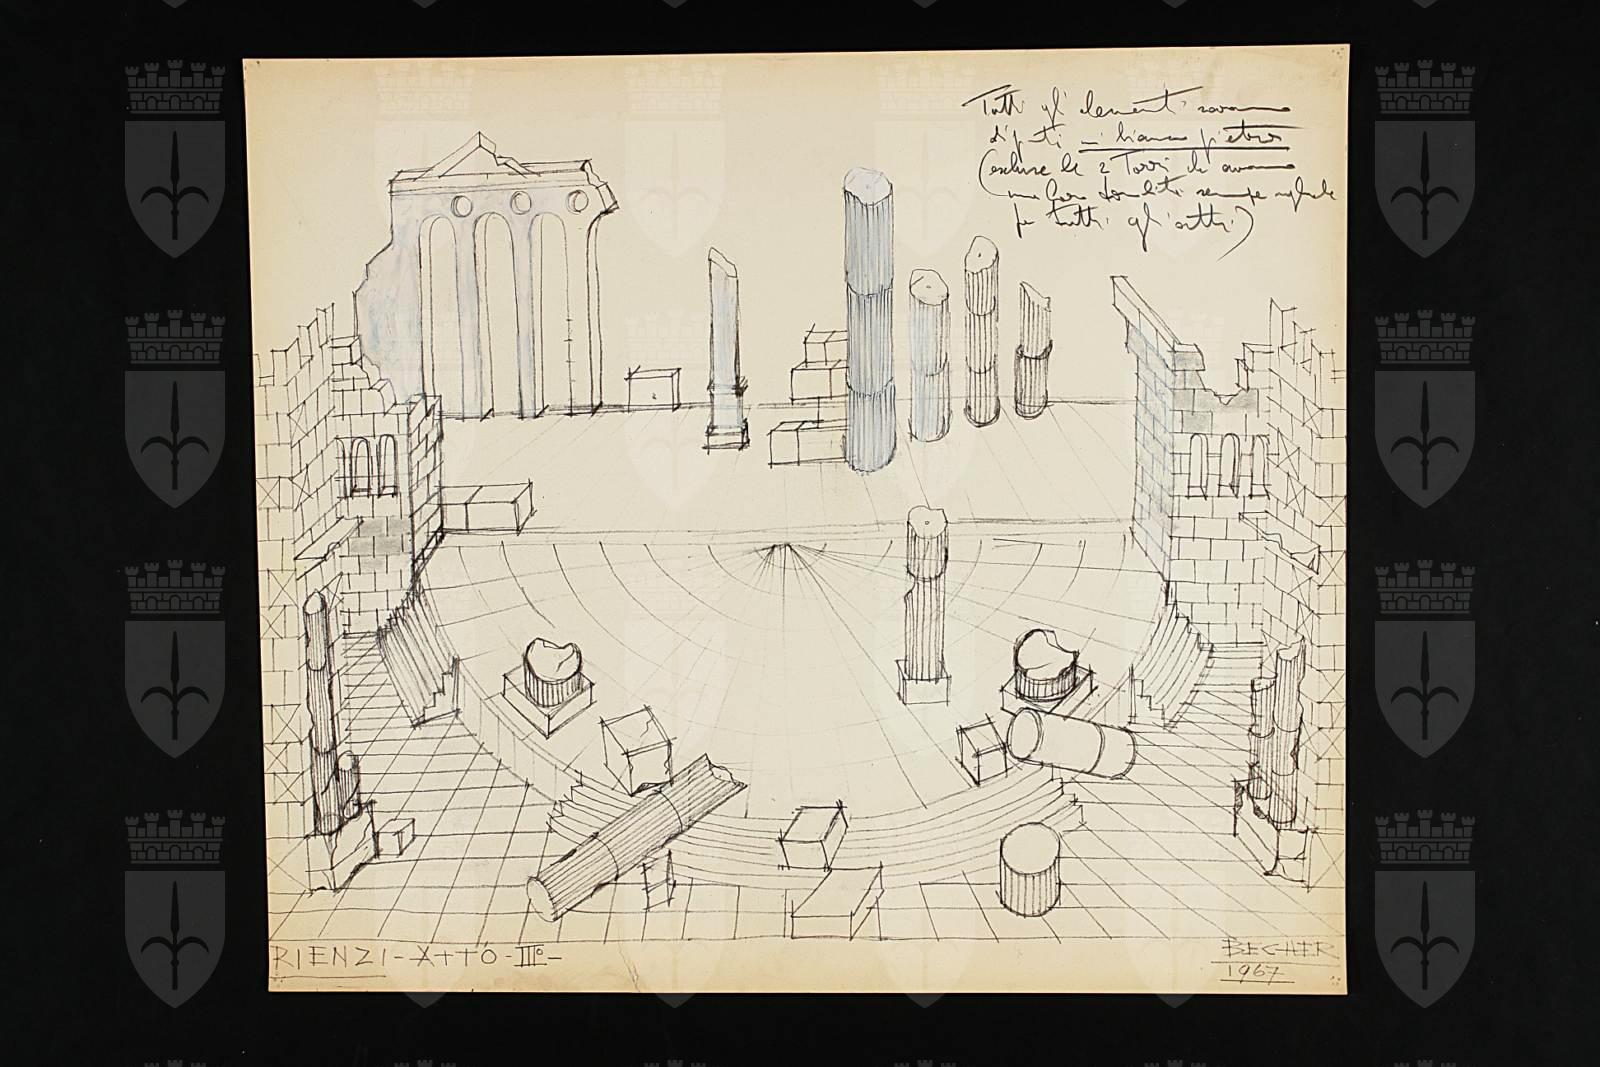 Tutti gl' elementi saranno
dipinti in bianco pietra
(escluse le 2 Torri che avranno
una loro tonalità sempre uguale
per tutti gl' atti)
RIENZI - ATTO - IIIº -
BECHER
1967